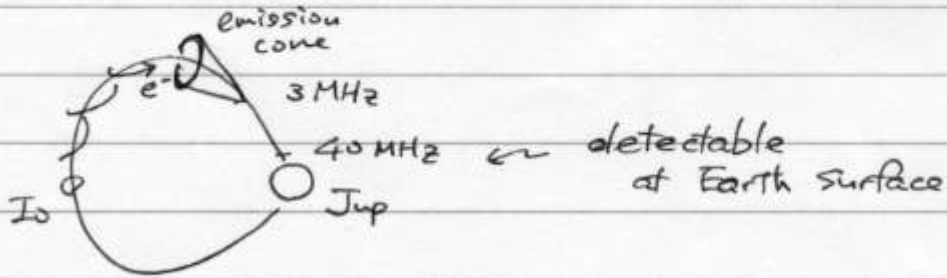 emission
cone
e-
3 MHz
40 MHz ← detectable
at Earth surface
Io
Jup